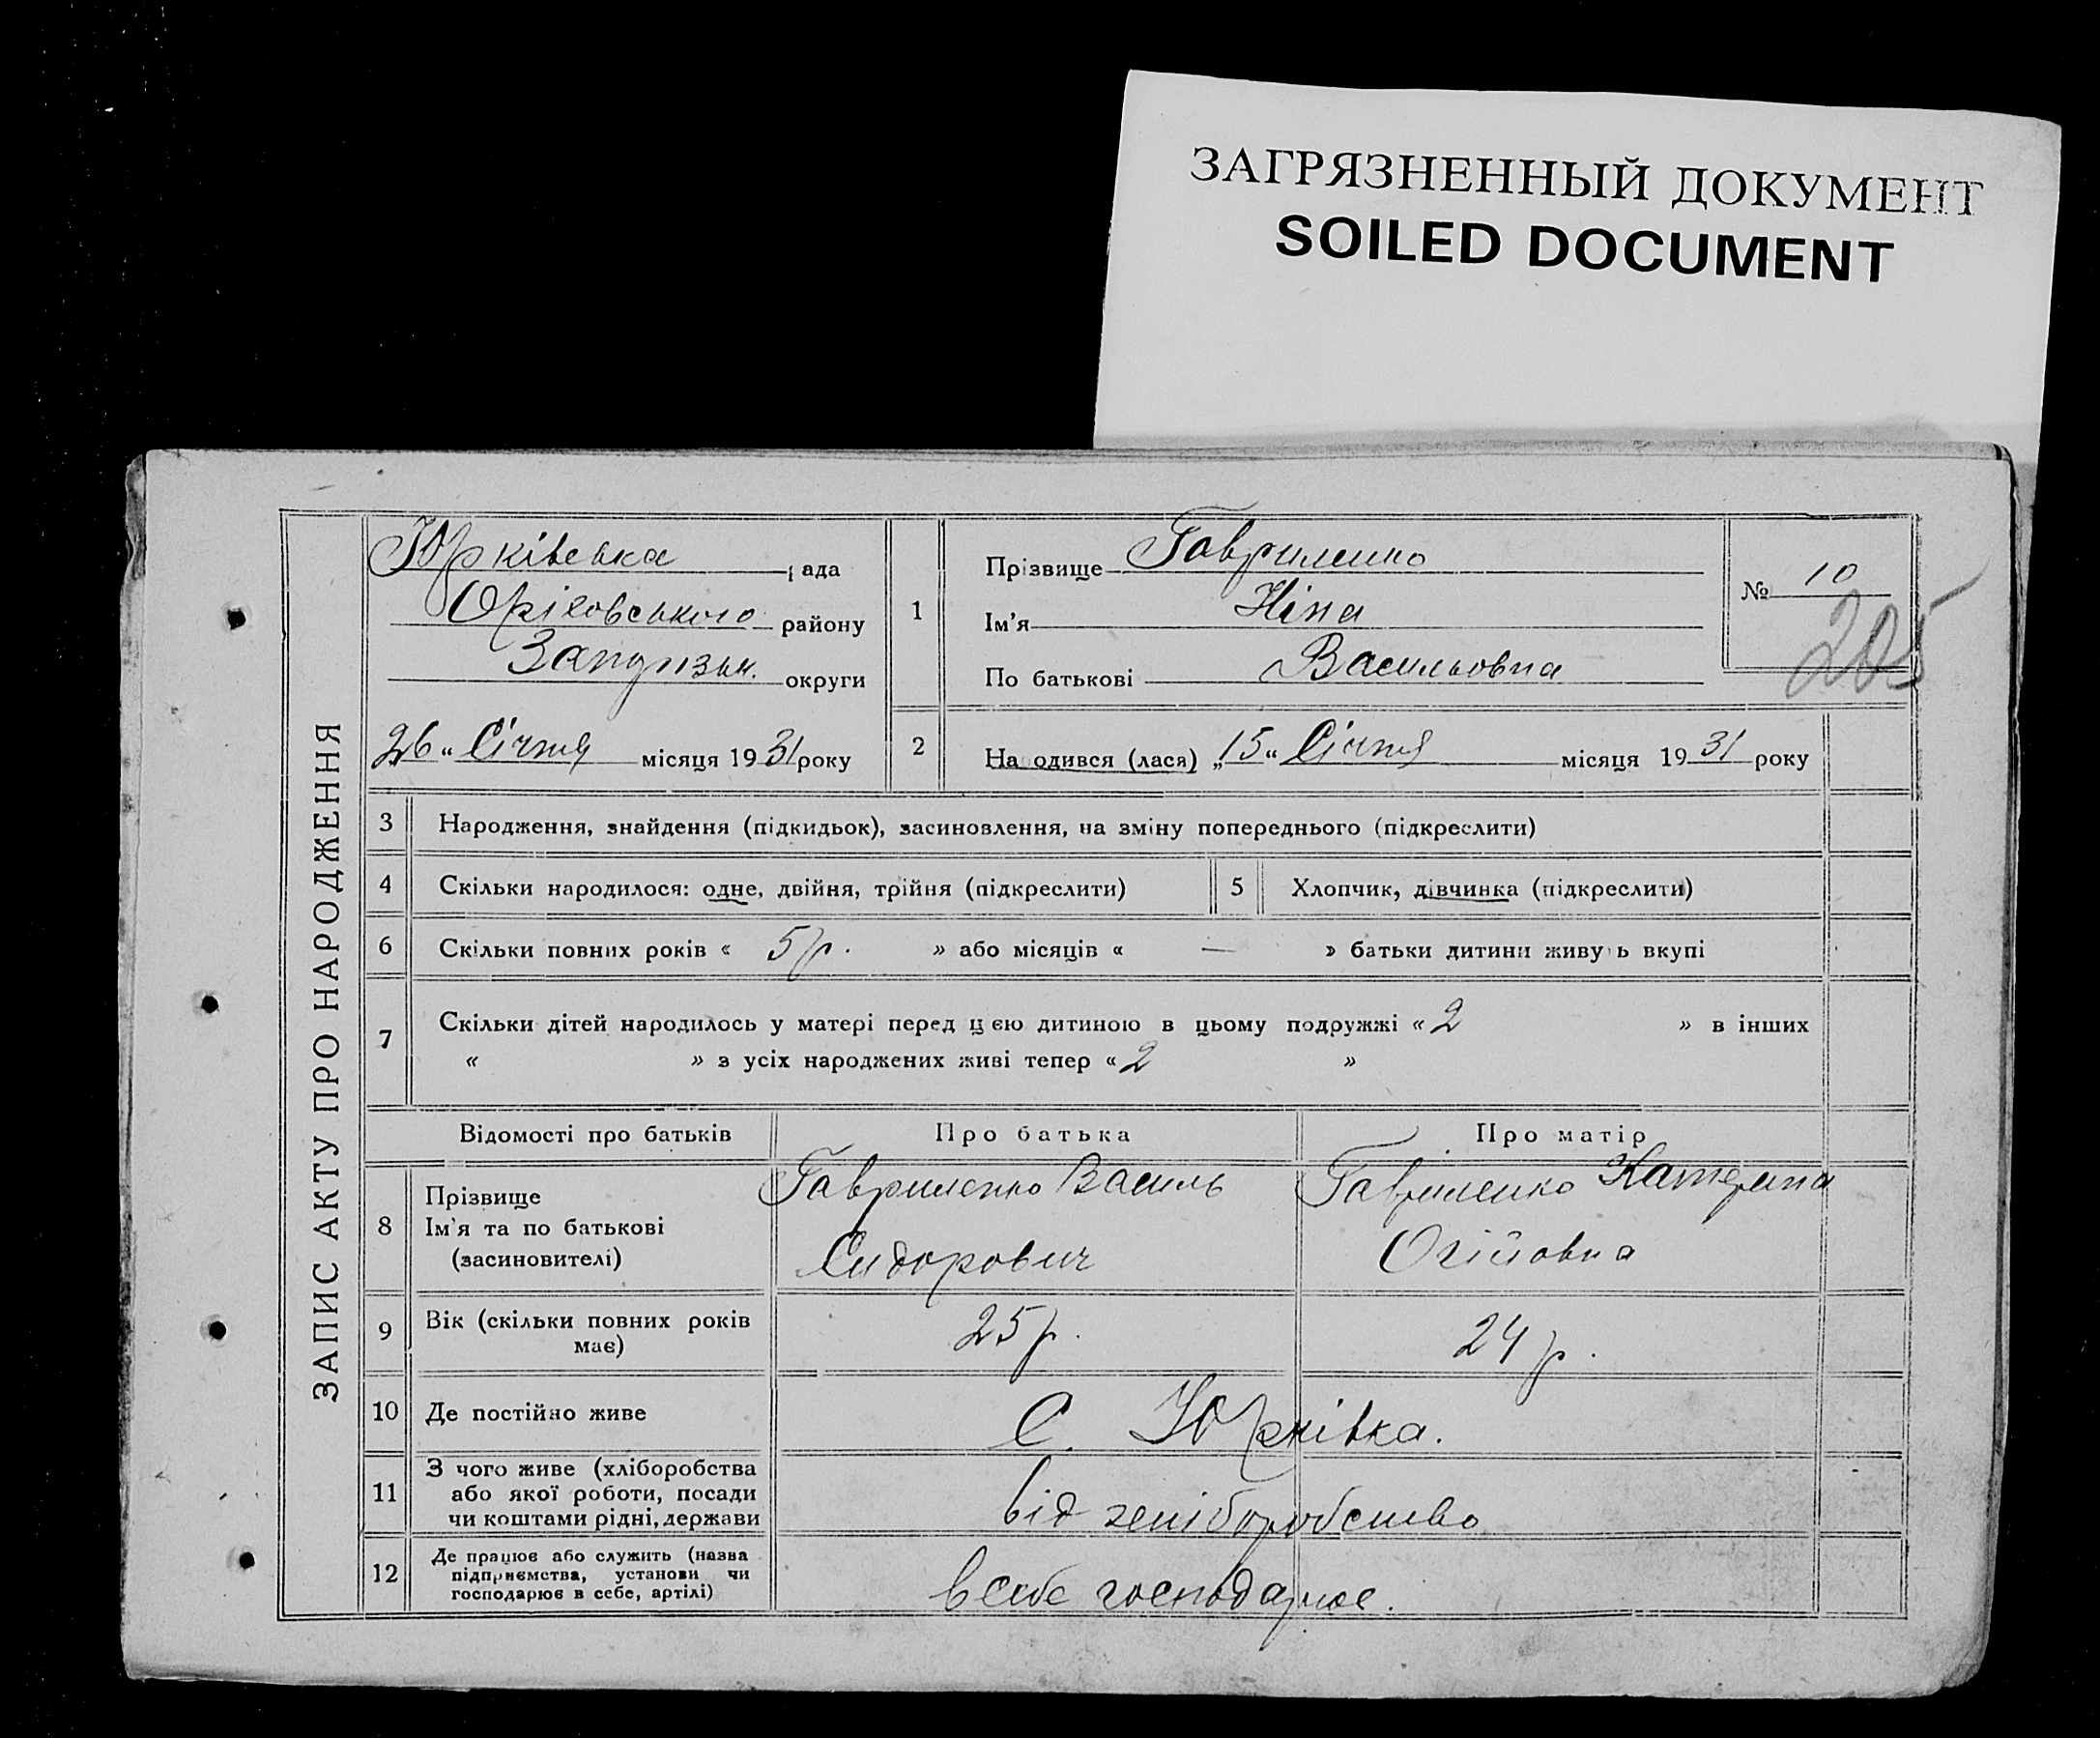 ЗАГРЯЗНЕННЫЙ ДОКУМЕНТ
SOILED DOCUMENT
ЗАПИС АКТУ ПРО НАРОДЖЕННЯ
Юрківська рада
Оріховського району
округи
26 „ Січня місяця 1931 року
1
Прізвище Гавриленко
Ім'я Ніна
По батькові Васильовна
№ 10
205
2 Народився (лася) „15“ Січня місяця 1931 року
3 Народження, знайдення (підкидьок), засиновлення, на зміну попереднього (підкреслити)
4 Скільки народилося: одне, двійня, трійня (підкреслити) 5 Хлопчик, дівчинка (підкреслити)
6 Скільки повних років « 5 р. » або місяців « — » батьки дитини живуть вкупі
7 Скільки дітей народилось у матері перед цією дитиною в цьому подружжі « 2 » в інших
« » з усіх народжених живі тепер « 2 »
Відомості про батьків Про батька Про матір
8 Прізвище
Ім'я та по батькові
(засиновителі)
Гавриленко Василь
Сидорович
Гавриленко Катерина
9 Вік (скільки повних років
має)
25 р.
24 р.
10 Де постійно живе С. Юрківка.
11 З чого живе (хліборобства
або якої роботи, посади
чи коштами рідні, держави
від
12 Де працює або служить (назва
підприємства, установи чи
господарює в себе, артілі)
в себе господарює.